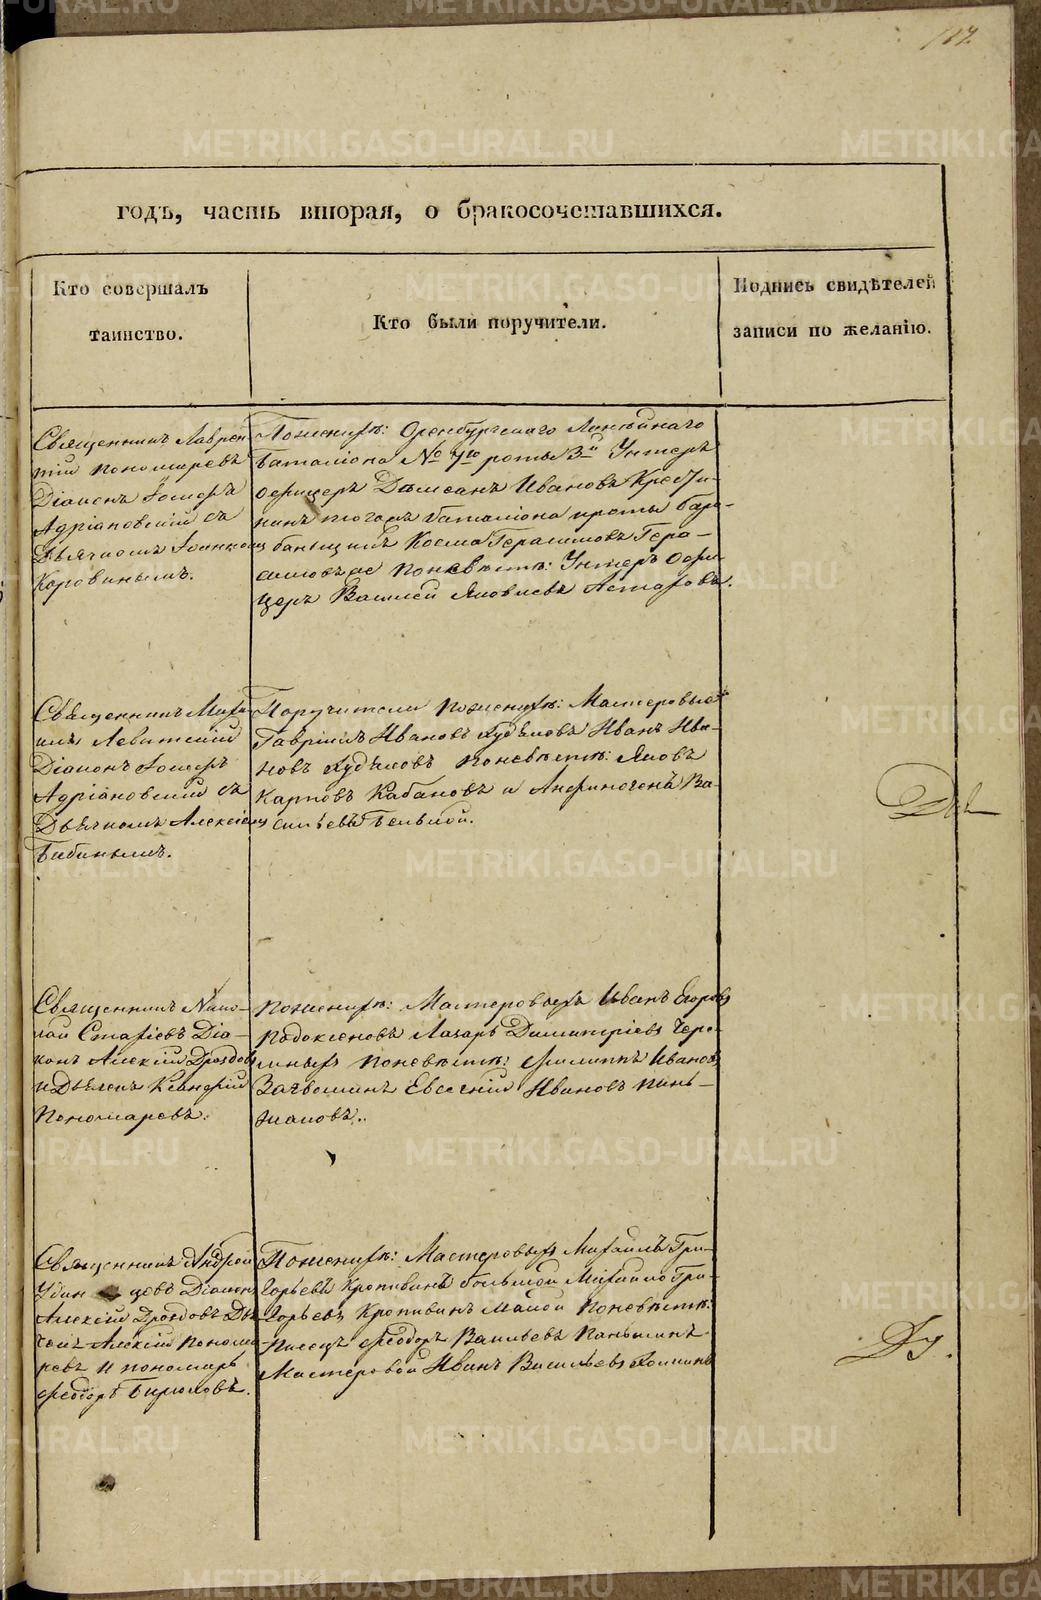 187.
годъ, часть вторая, о бракосочетавшихся.
Кто совершалъ
таинство.
Кто были поручители.
Подпись свидѣтелей
записи по желанію.
Священникъ Лаврен
тій Пономаревъ
Діаконъ Іосифъ
Адріановскій съ
Дьячкомъ
Коровинымъ.
Поженихѣ: Оренбургскаго Линѣйнаго
Баталіона № 7го роты 3й Унтеръ
офицеръ Дамсанъ Ивановъ
тогожъ баталіона роты бара-
баньщикъ Косма Герасимовъ Гера-
симовъ Поневѣстѣ: Унтеръ Офи
церъ Василей Яковлевъ Астафовъ.
Священникъ Миха
илъ Левитскій
Діаконъ Іосифъ
Адріановскій съ
Дьячкомъ Алексіемъ
Бабинымъ.
Поручители поженихѣ: Мастеровые
Гавріилъ Ивановъ Худяковъ Иванъ Ива-
новъ Худяковъ поневѣстѣ: Яковъ
Карповъ Кабановъ и Ва-
сильевъ
Священникъ Нико-
лай Стафіевъ Діа-
конъ Алексій Дроздовъ
и Дьячекъ
Пономаревъ.
Поженихѣ: Мастеровыя Иванъ Егоровъ
Лазарь Димитріевъ Чере-
поневѣстѣ: Филиппъ Ивановъ
Евсевій Ивановъ Пань-
шаковъ.
Священникъ Андрей
Удинцовъ Діаконъ
Алексій Дроздовъ Дья
чекъ Алексій Понома
ревъ и пономарь
Феодоръ Бирюковъ.
Поженихѣ: Мастеровыя Михаилъ Гри-
горьевъ Кропивинъ большой Михайло Гри-
горьевъ Кропивинъ малой Поневѣстѣ:
Писецъ Феодоръ Васильевъ Паньшинъ
Мастеровой Иванъ Васильевъ